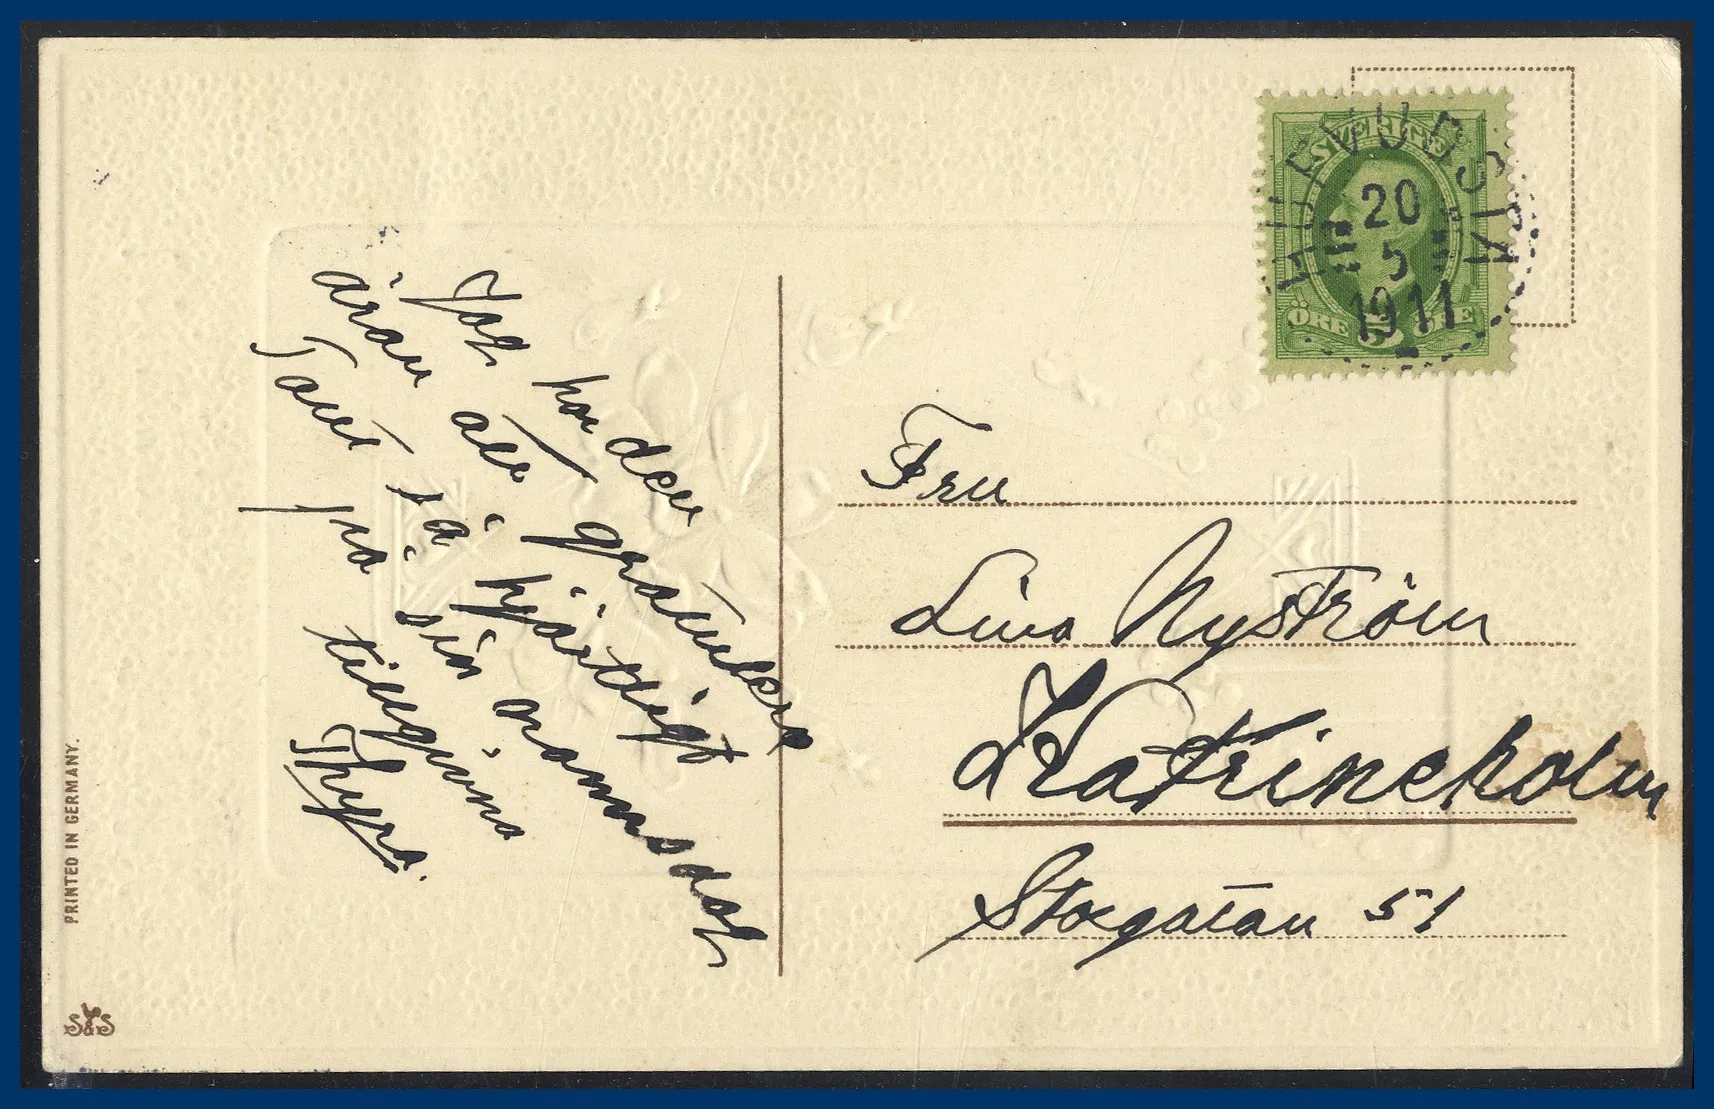 Jag har den
äran att gratulera
Tant så hjärtligt
på sin namnsdag
tillgifna
Thyra.
SVERIGE
HUFVUDSTA
20
5
1911
ÖRE 5 ÖRE
Fru
Lina Nyström
Katrineholm
Storgatan 51
PRINTED IN GERMANY.
S&S